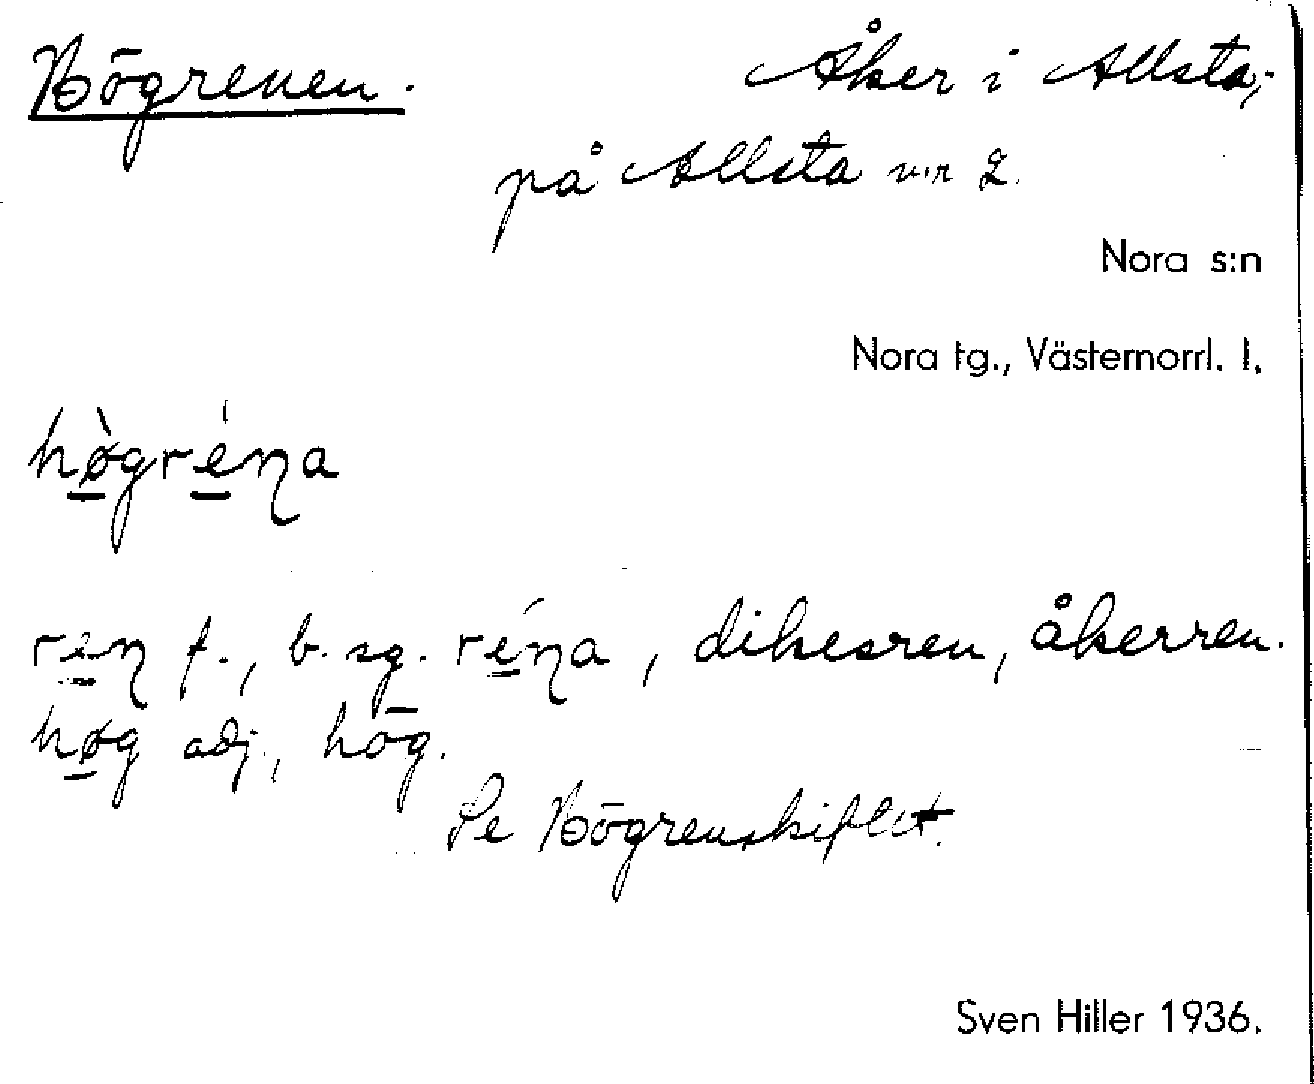 Högrenen. Åker i Allsta,
på Allsta n:r 2.
Nora s:n
Nora tg., Västernorrl. l.
hø̱̀gré̱ŋa
re̱ŋ f., b. sg. ré̱ŋa, dikesren, åkerren.
hø̱g adj., hög.
Se Högrenskiftet.
Sven Hiller 1936.